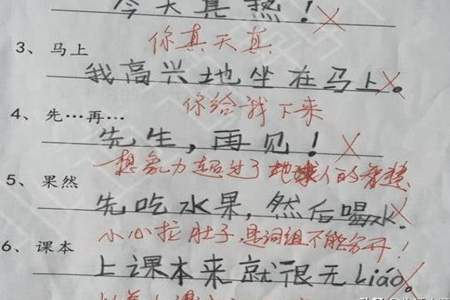 今天真热！
你真天真
3、马上
我高兴地坐在马上。
你给我下来
4、先…再…
先生，再见！
想象力超过了地球人的智慧！
5、果然
先吃水果，然后喝水。
小心拉肚子，是词组不能分开！
6、课本
上课本来就很无liáo。